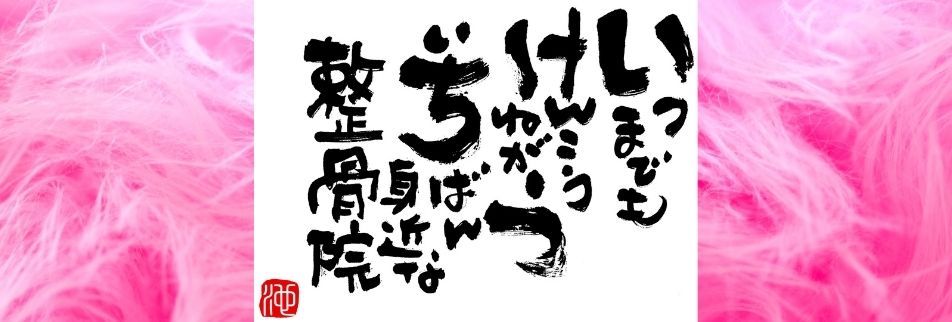 いつまでも
けんこう
ねがう
いちばん
身近な
整骨院